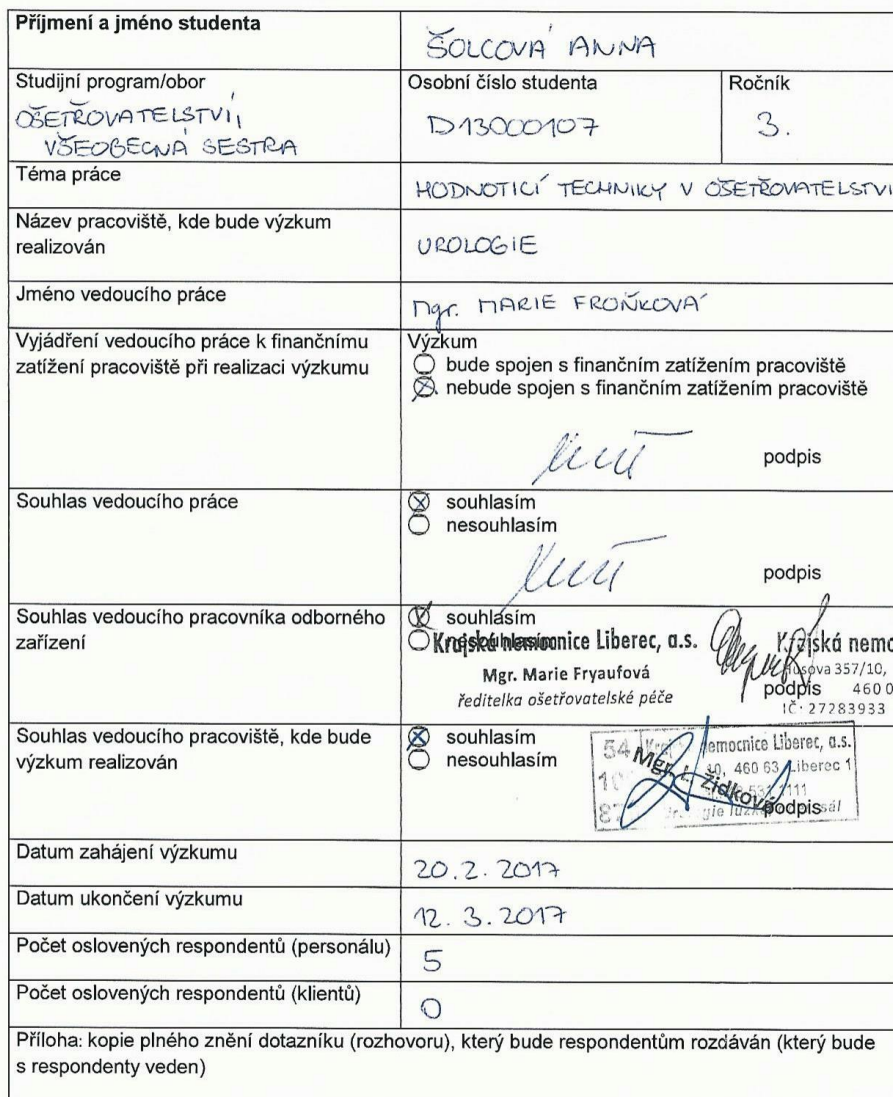 Příjmení a jméno studenta
ŠOLCOVÁ ANNA
Studijní program/obor
OŠETŘOVATELSTVÍ,
VŠEOBECNÁ SESTRA
Osobní číslo studenta
D13000107
Ročník
3.
Téma práce
HODNOTICÍ TECHNIKY V OŠETŘOVATELSTVÍ
Název pracoviště, kde bude výzkum
realizován
UROLOGIE
Jméno vedoucího práce
Mgr. MARIE FROŇKOVÁ
Vyjádření vedoucího práce k finančnímu
zatížení pracoviště při realizaci výzkumu
Výzkum
bude spojen s finančním zatížením pracoviště
nebude spojen s finančním zatížením pracoviště
podpis
Souhlas vedoucího práce
souhlasím
nesouhlasím
podpis
Souhlas vedoucího pracovníka odborného
zařízení
souhlasím
nesouhlasím
Krajská nemocnice Liberec, a.s.
Mgr. Marie Fryaufová
ředitelka ošetřovatelské péče
Krajská nemo
Husova 357/10,
460 0
IČ: 27283933
podpis
Souhlas vedoucího pracoviště, kde bude
výzkum realizován
souhlasím
nesouhlasím
54 Nemocnice Liberec, a.s.
10, 460 63 Liberec 1
Mgr. L. Židková
podpis
Datum zahájení výzkumu
20.2.2017
Datum ukončení výzkumu
12. 3. 2017
Počet oslovených respondentů (personálu)
5
Počet oslovených respondentů (klientů)
0
Příloha: kopie plného znění dotazníku (rozhovoru), který bude respondentům rozdáván (který bude
s respondenty veden)